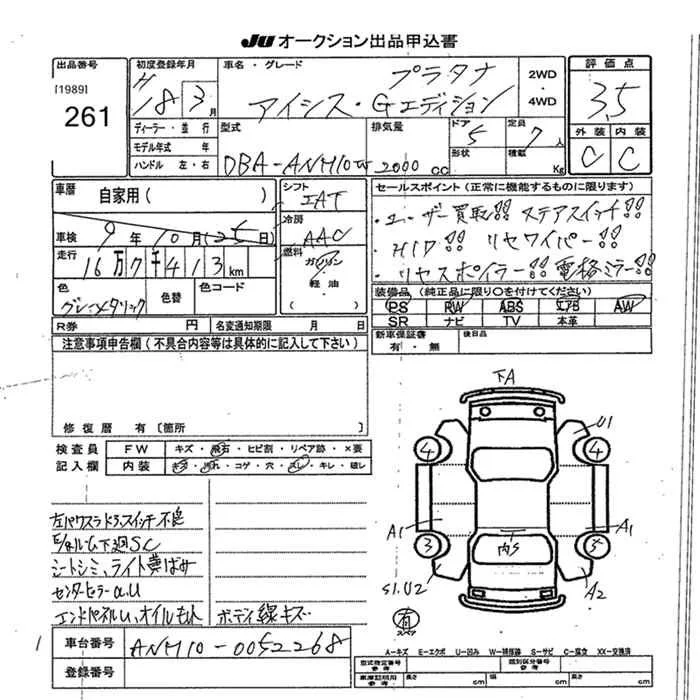 JU オークション出品申込書
出品番号 初度登録年月 車名・グレード プラタナ 2WD 評価点
[1989] H アイシス・Gエディション ・ 3.5
261 18 3月 4WD
ディーラー・並行 型式 排気量 ドア 5 定員 7人 外装 内装
モデル年式 年 DBA-ANM10W 2000cc 形状 積載 Kg C C
ハンドル 左・右
車歴 自家用( ) シフト セールスポイント(正常に機能するものに限ります)
IAT ・ユーザー買取!! ステアスイッチ!!
車検 9年10月(25日) 冷房 AAC ・HID!! リヤワイパー!!
走行 16万7千413km 燃料 ガソリン ・軽油 ・リヤスポイラー!! 電格ミラー!!
色 色替 色コード 装備品(純正品に限り○を付けてください)
グレーメタリック PS PW ABS エアB AW
SR ナビ TV 本革
R券 円 名変通知期限 月 日 新車保証書 有・無 後日品
注意事項申告欄(不具合内容等は具体的に記入して下さい)
修復歴 有〔箇所
検査員 FW キズ・飛石・ヒビ割・リペア跡・×要
記入欄 内装 キズ・汚れ・コゲ・穴・スレ・キレ・破レ
下A
U1
4 4
A1 A1
3 内S 5
S1.U2 A2
有
スペア
左パワスラドア、スイッチ不良
下廻SC
シートシミ、ライト黄ばみ
センターピラーα.U
エンドパネルU、オイルもれ ボディ線キズ
車台番号 ANM10-0052268
登録番号
A-キズ E-エクボ U-凹み W-補修跡 S-サビ C-腐食 XX-交換済
型式指定番号 参考 類別区分番号 参考
車庫証明用 参考 長さ cm 幅 cm 高さ cm